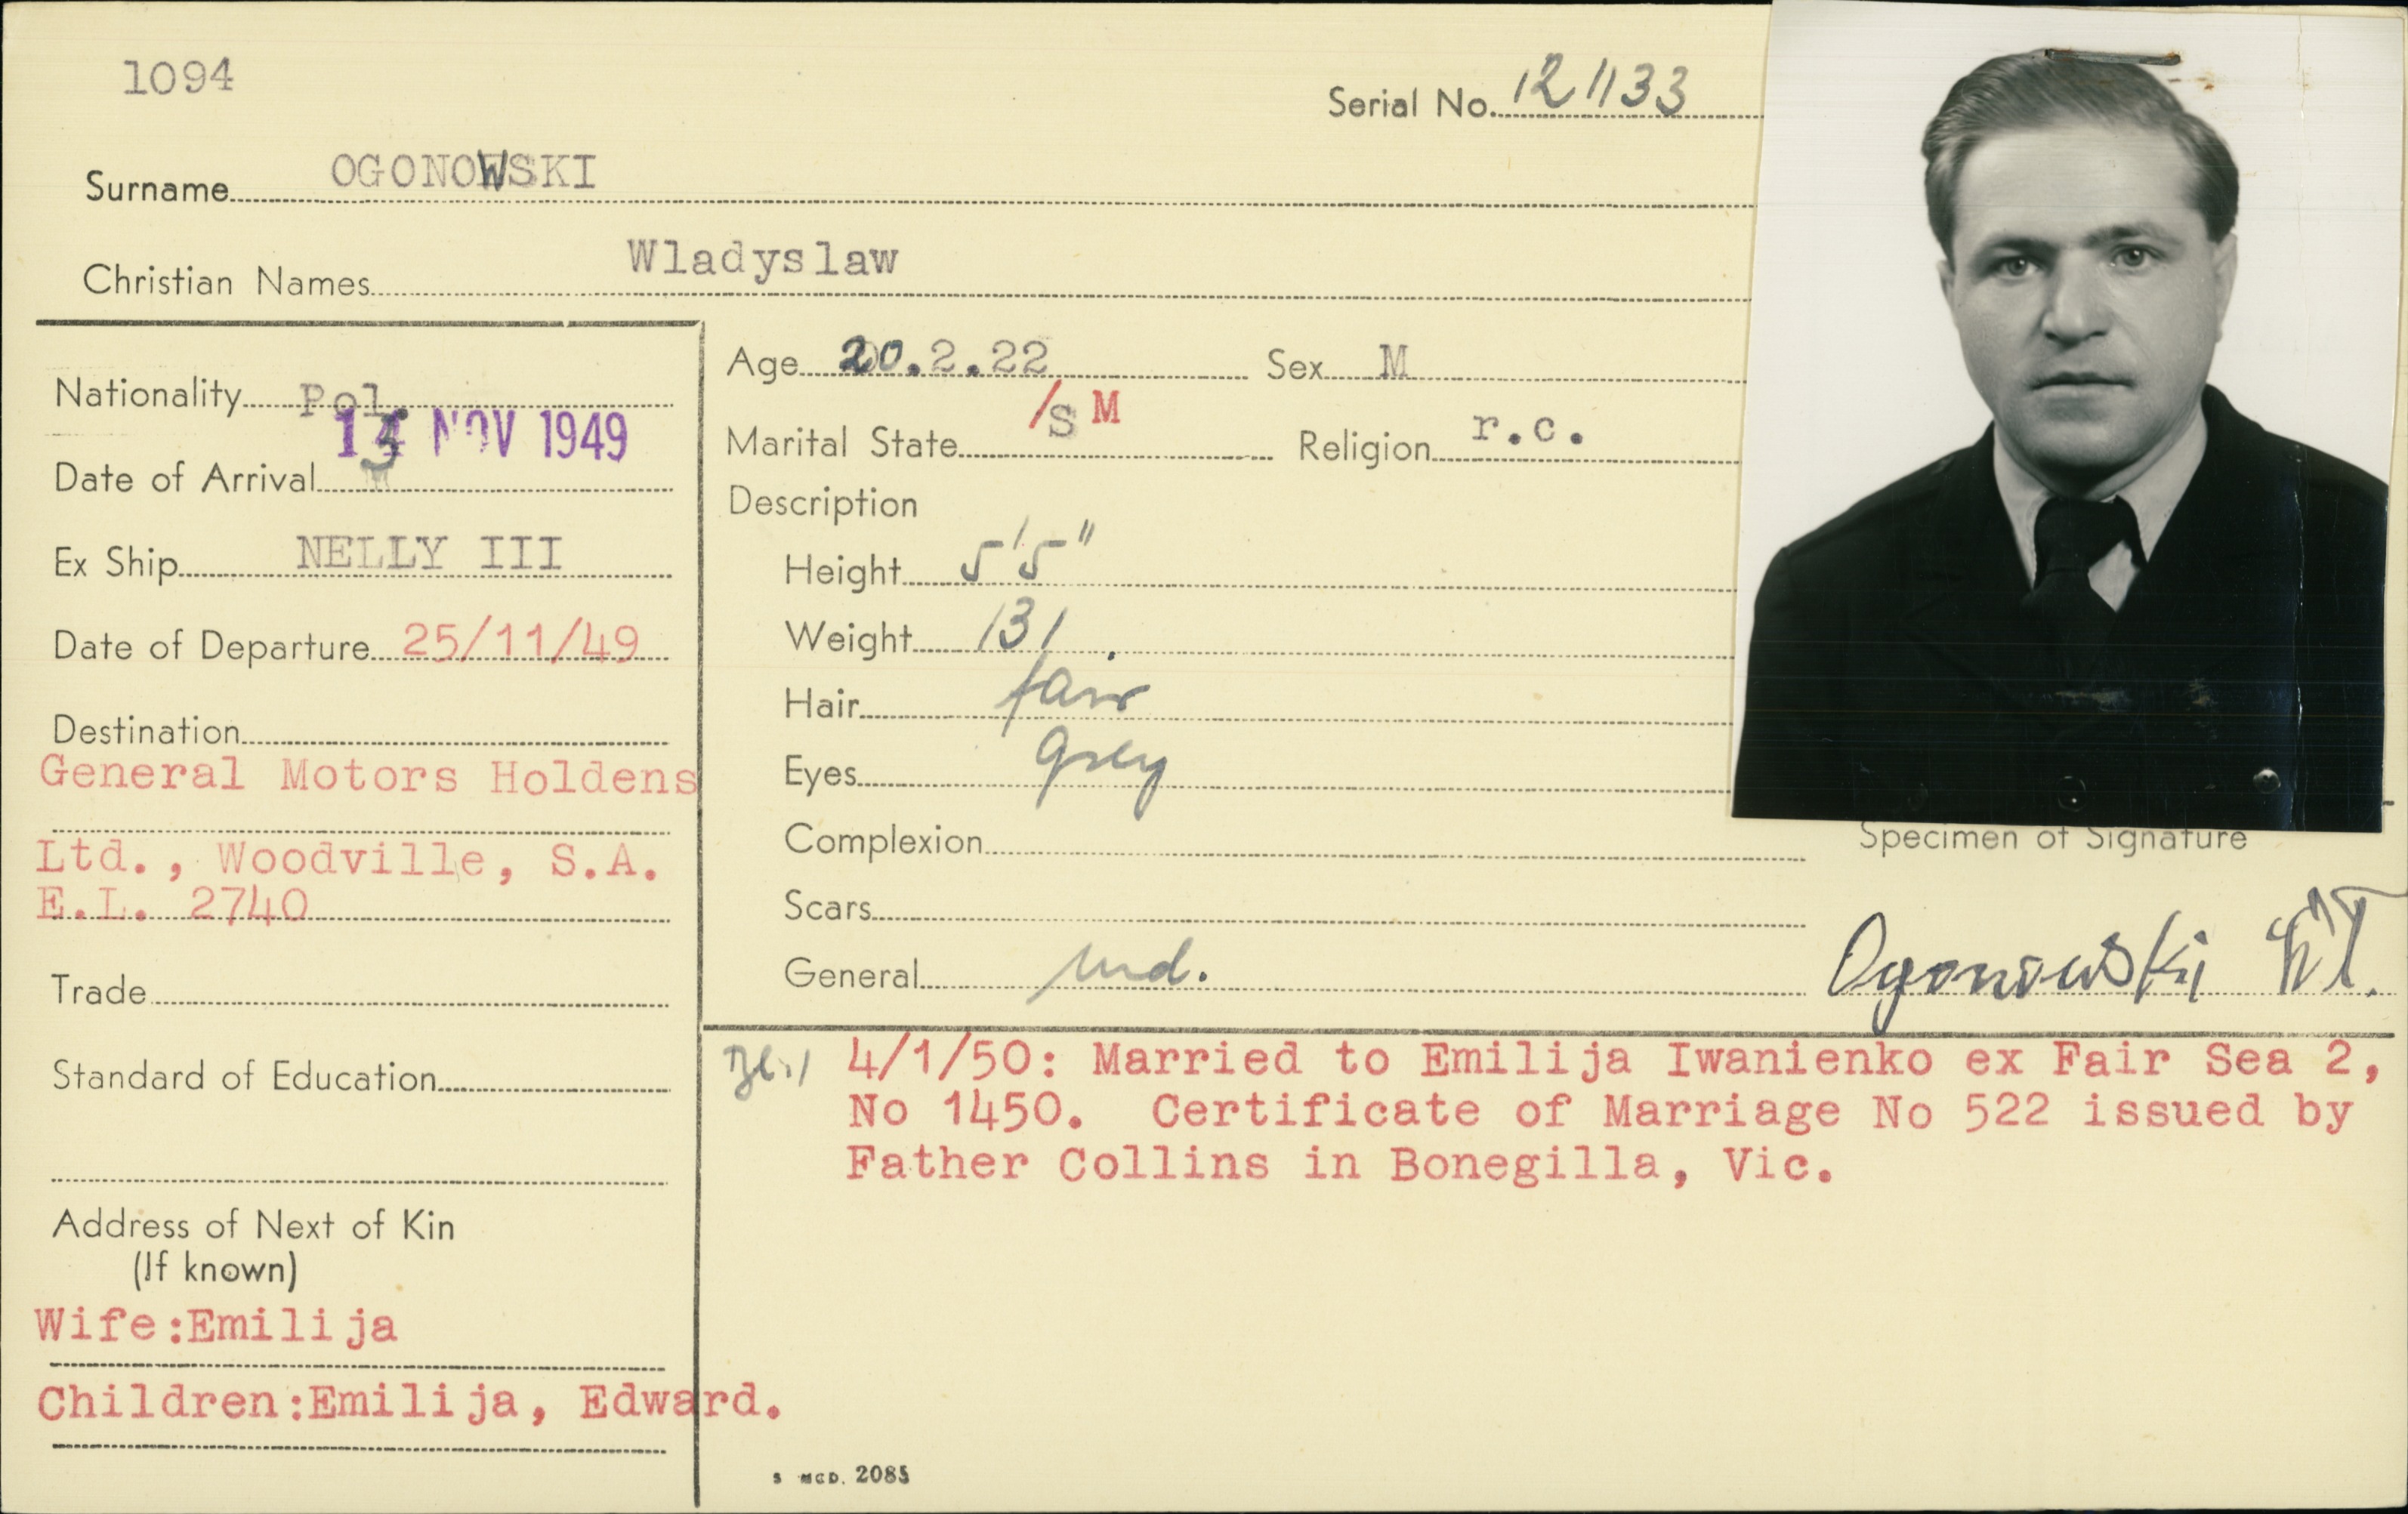 1094
Serial No. 121133
Surname OGONOWSKI
Christian Names Wladyslaw
Nationality Pol.
14 NOV 1949
Date of Arrival
Ex Ship NELLY III
Date of Departure 25/11/49
Destination
General Motors Holdens
Ltd., Woodville, S.A.
E.L. 2740
Trade
Standard of Education
Address of Next of Kin
(If known)
Wife:Emilija
Children:Emilija, Edward.
Age 20.2.22 Sex M
Marital State /S M Religion r.c.
Description
Height 5'5"
Weight 131.
Hair fair
Eyes grey
Complexion
Scars
General
Specimen of Signature
Ogonowski Wł.
4/1/50: Married to Emilija Iwanienko ex Fair Sea 2,
No 1450. Certificate of Marriage No 522 issued by
Father Collins in Bonegilla, Vic.
S MCD. 2085